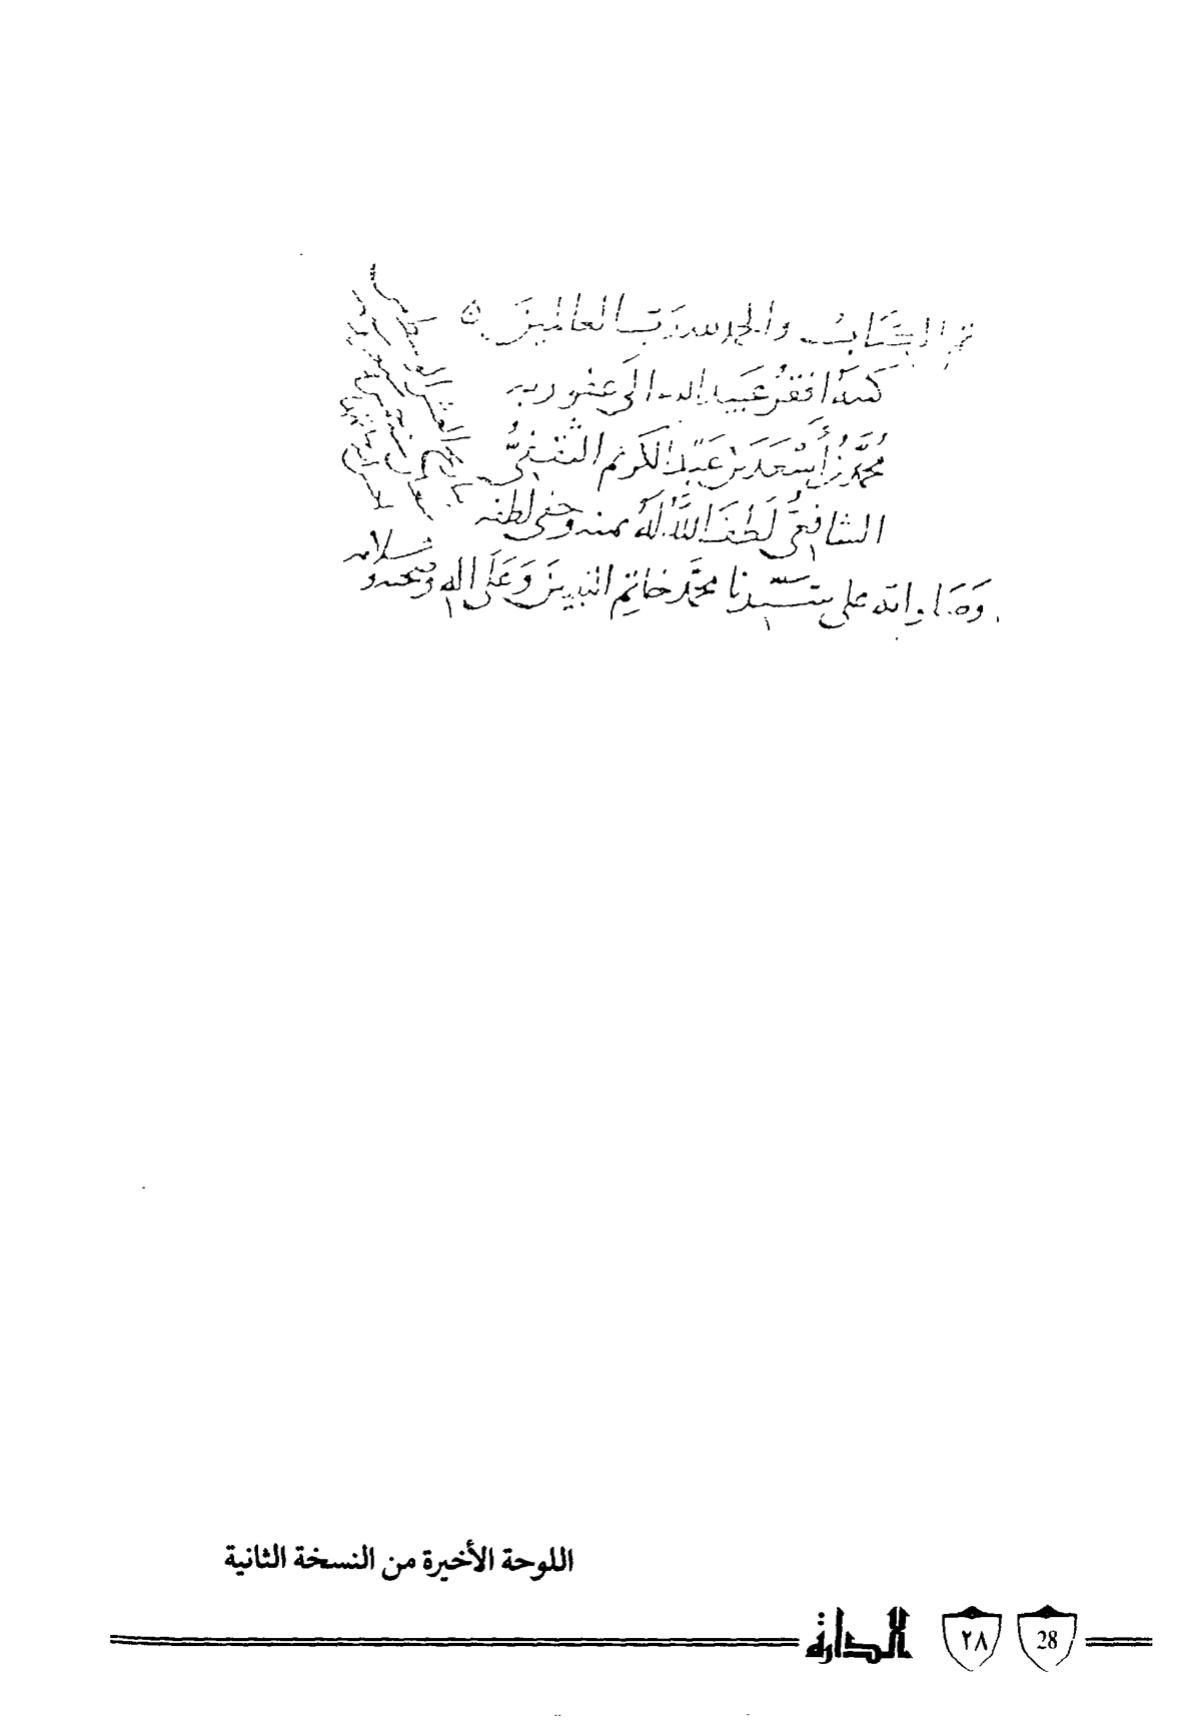 تم الكتاب والحمد لله رب العالمين
كتبه أفقر عبيد الله الى عفو ربه
مُحمَّد بن أَسْعَد بن عَبد الكريم الثقفيُّ
الشافِعيُّ لَطفَ اللَّهُ لَهُ بمنه وخفي لطفه
وصلواته على سَيّدنا محمَّد خاتم النبيين وَعَلَى اله وصحبه وسلامه
اللوحة الأخيرة من النسخة الثانية
الدارة ٢٨ 28